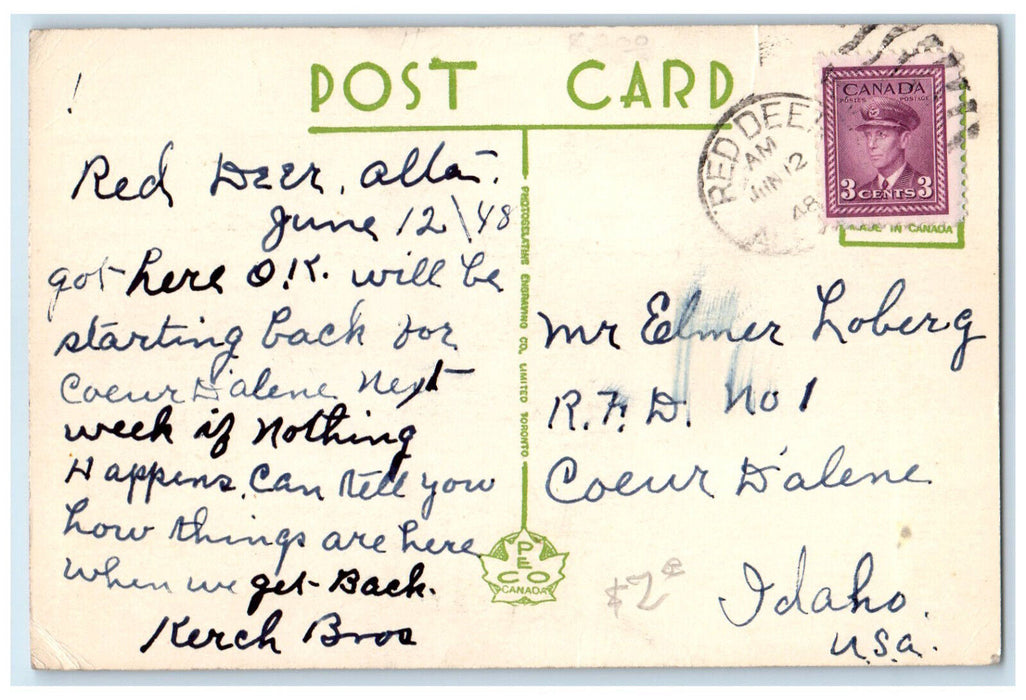 POST CARD
!
Red Deer, Alta.
June 12 \ 48
got here O.K. will be
starting back for
Coeur D'alene Next
week if Nothing
Happens. Can tell you
how things are here
when we get Back.
Kerch Bros
PHOTOGELATINE ENGRAVING CO. LIMITED TORONTO
PECO
CANADA
RED DEER
AM
JUN 12
48
CANADA
POSTES POSTAGE
3 CENTS 3
MADE IN CANADA
Mr Elmer Loberg
R.F.D. No 1
Coeur D'alene
Idaho.
U.S.a.
$2